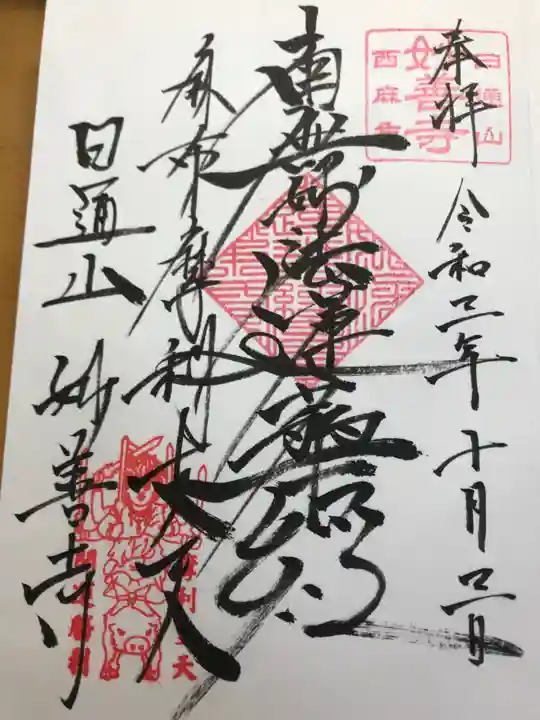 奉拝
令和三年十月二日
日通山
妙善寺
西麻布
南無妙法蓮華経
麻布摩利支天
日通山 妙善寺
摩利支天
開運勝利